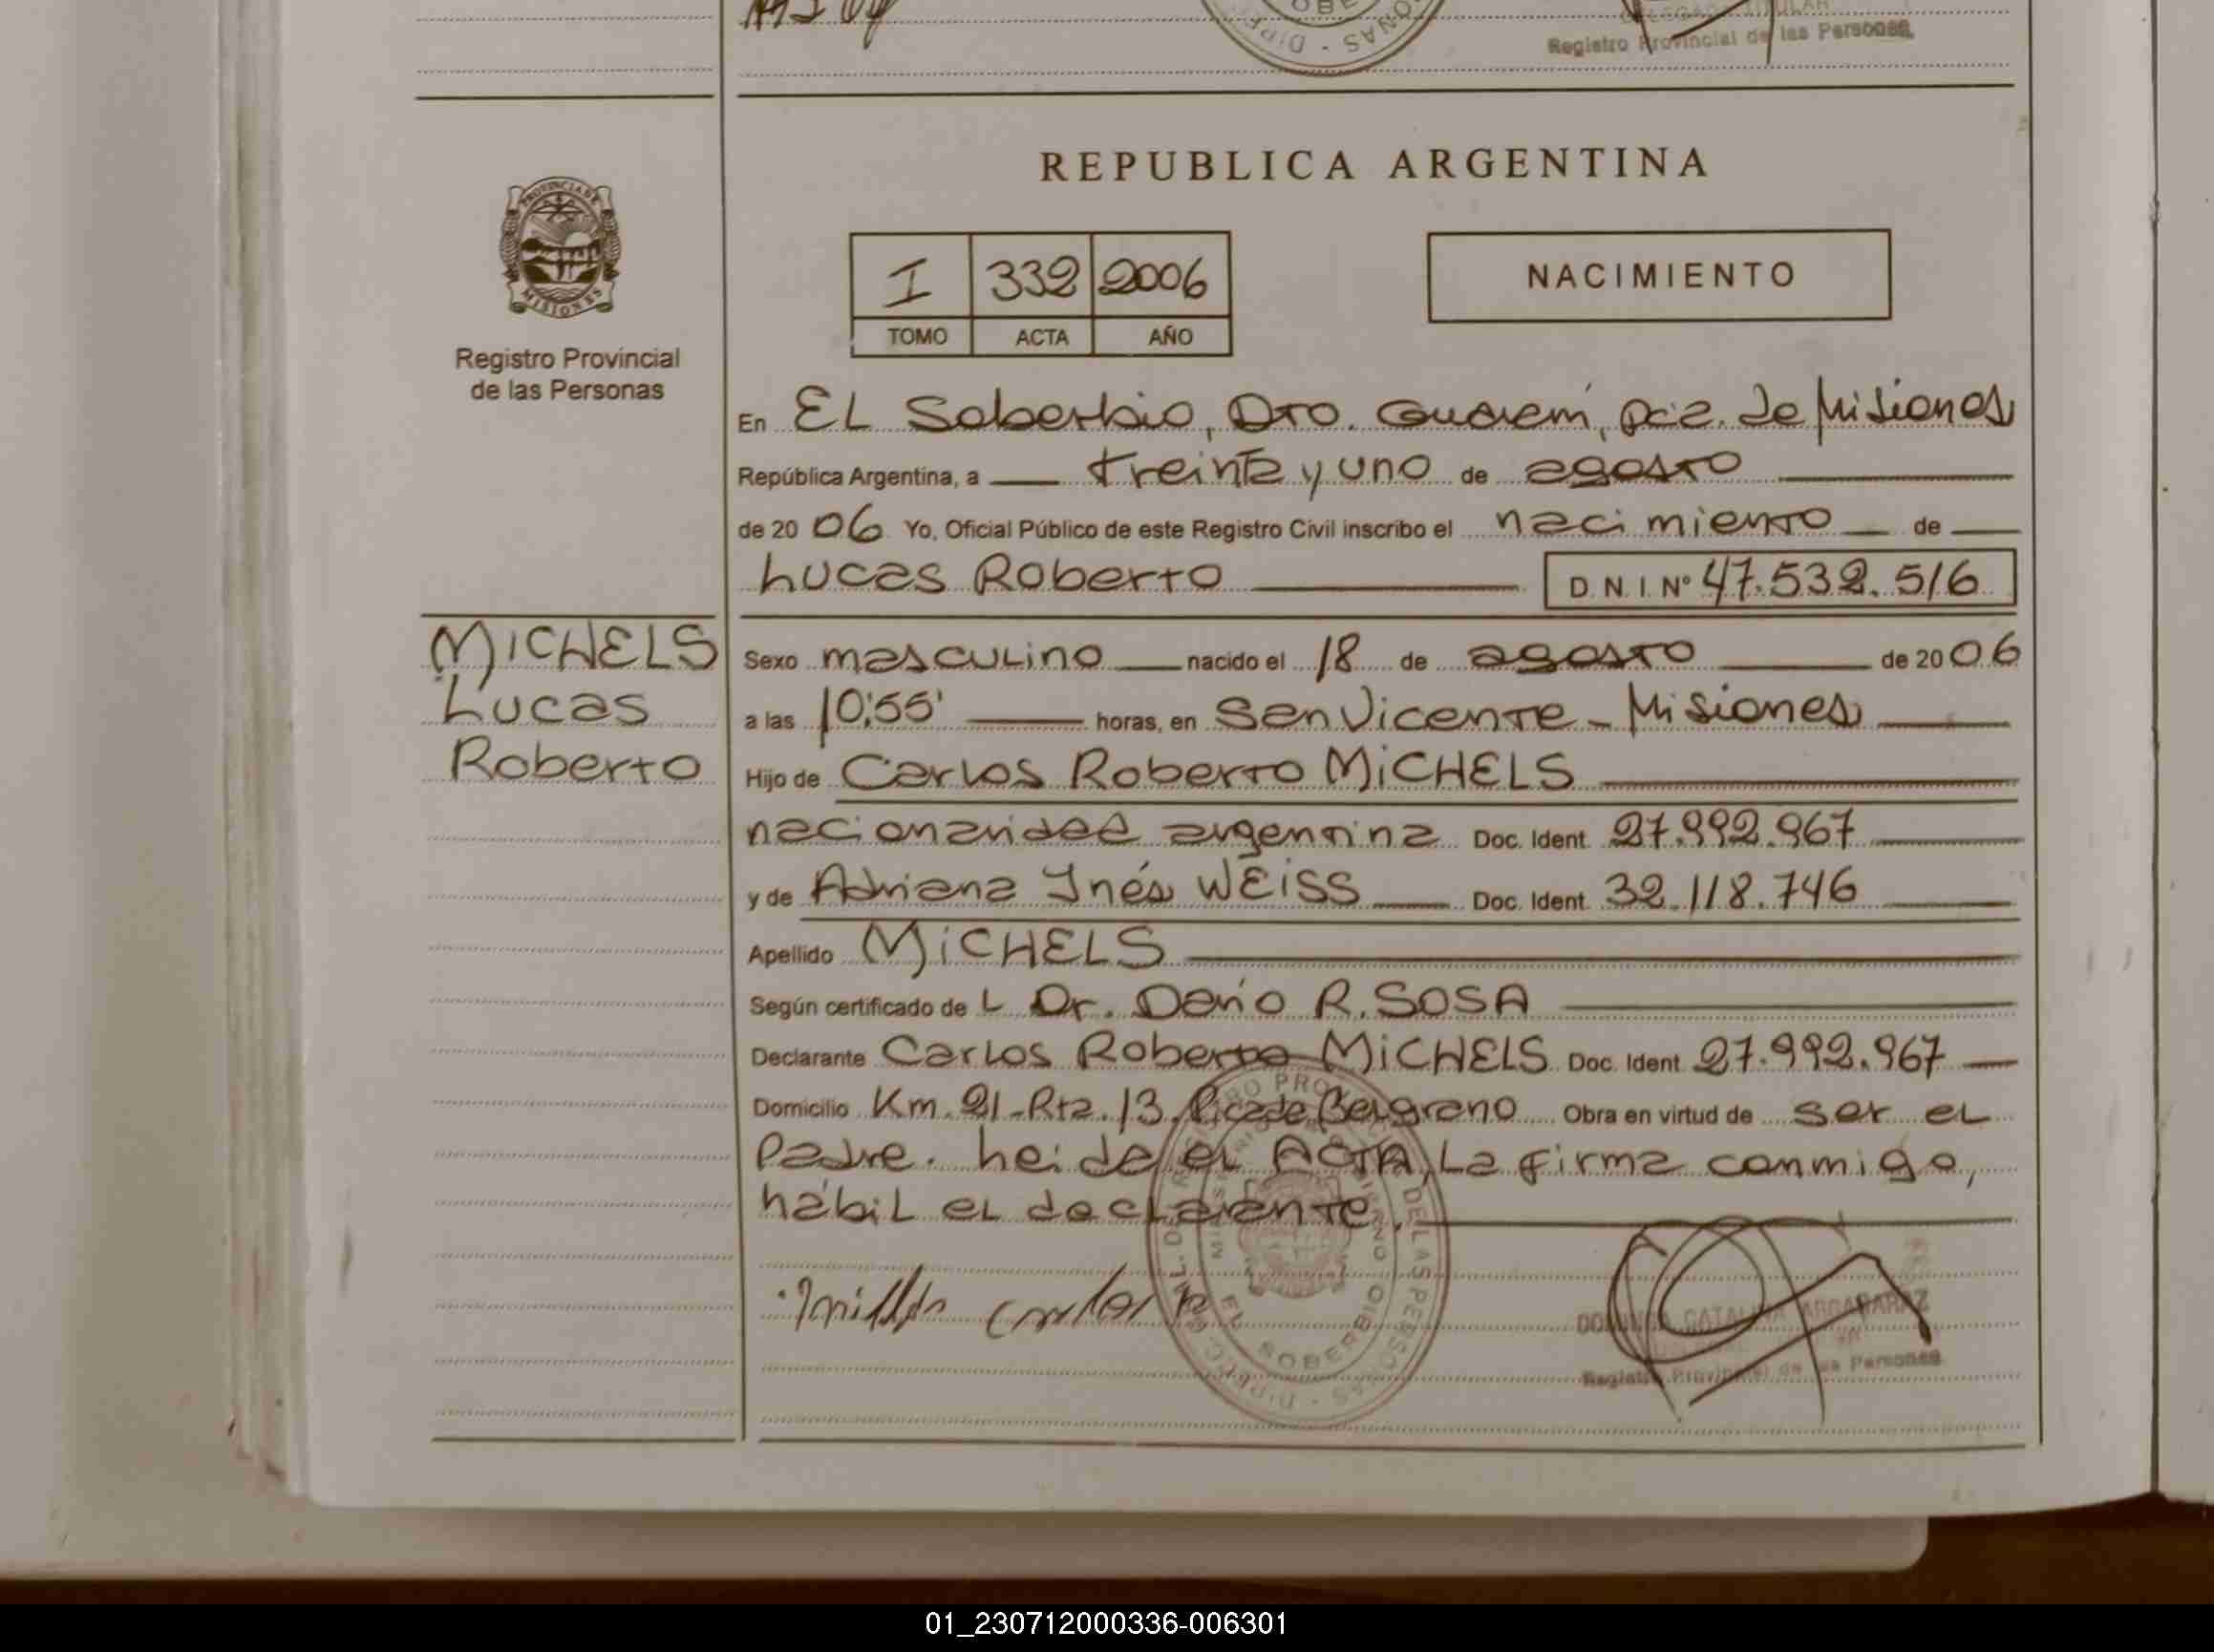 Registro Provincial de las Personas
REPUBLICA ARGENTINA
PROVINCIA DE
MISIONES
Registro Provincial
de las Personas
I 332 2006
TOMO ACTA AÑO
NACIMIENTO
En EL Soberbio, Dto. Guaraní, Pcia. de Misiones
República Argentina, a treinta y uno de agosto
de 20 06 Yo, Oficial Público de este Registro Civil inscribo el nacimiento de
Lucas Roberto D.N.I. Nº 47.532.516
MICHELS
Lucas
Roberto
Sexo masculino nacido el 18 de agosto de 20 06
a las 10:55' horas, en San Vicente - Misiones
Hijo de Carlos Roberto MiCHELS
nacionalidad argentina Doc. Ident. 27.992.967
y de Adriana Inés WEiSS Doc. Ident. 32.118.746
Apellido MiCHELS
Según certificado de L Dr. Darío R. SOSA
Declarante Carlos Roberto MiCHELS Doc. Ident. 27.992.967
Domicilio Km. 21 - Rta. 13, Picada Belgrano Obra en virtud de ser el
Padre. Leída el ACTA, La firma conmigo,
hábil el declarante.
EL SOBERBIO
CATALINA ARGAÑARAZ
Registro Provincial de las Personas
01_230712000336-006301